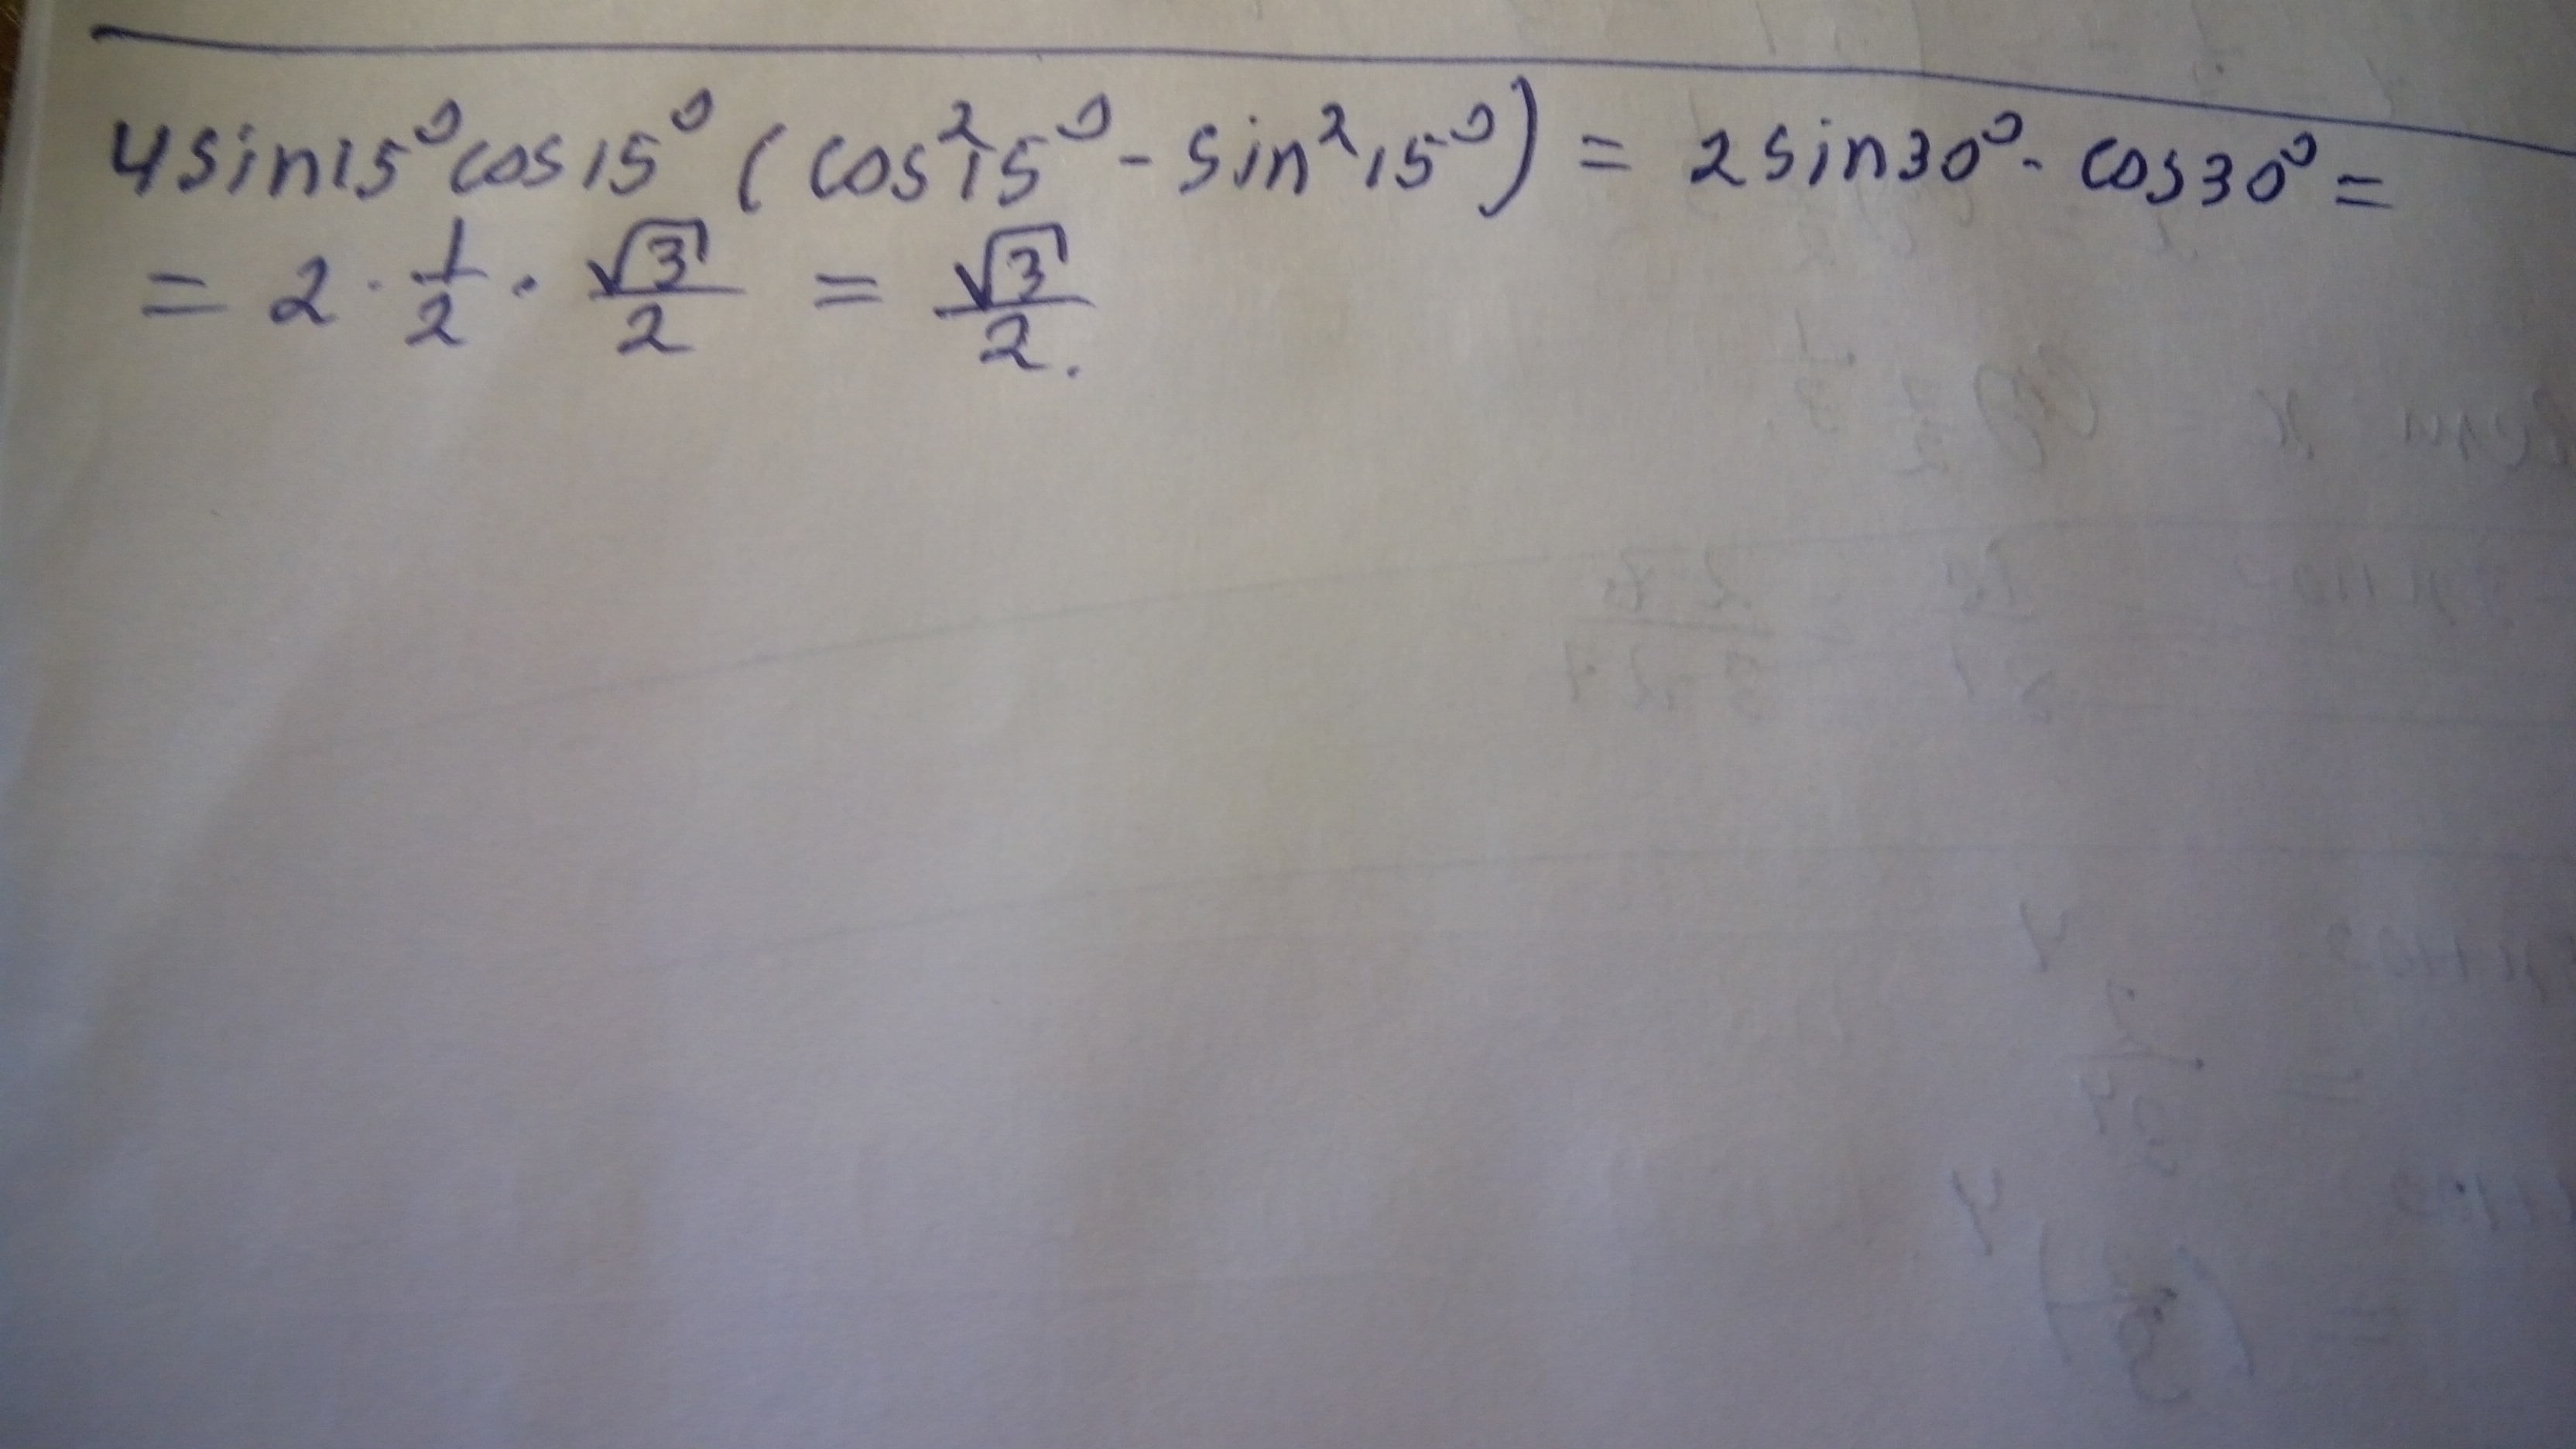 4sin15° cos15° (cos²15° - sin²15°) = 2sin30° · cos30° =
= 2 · 1/2 · √3/2 = √3/2.